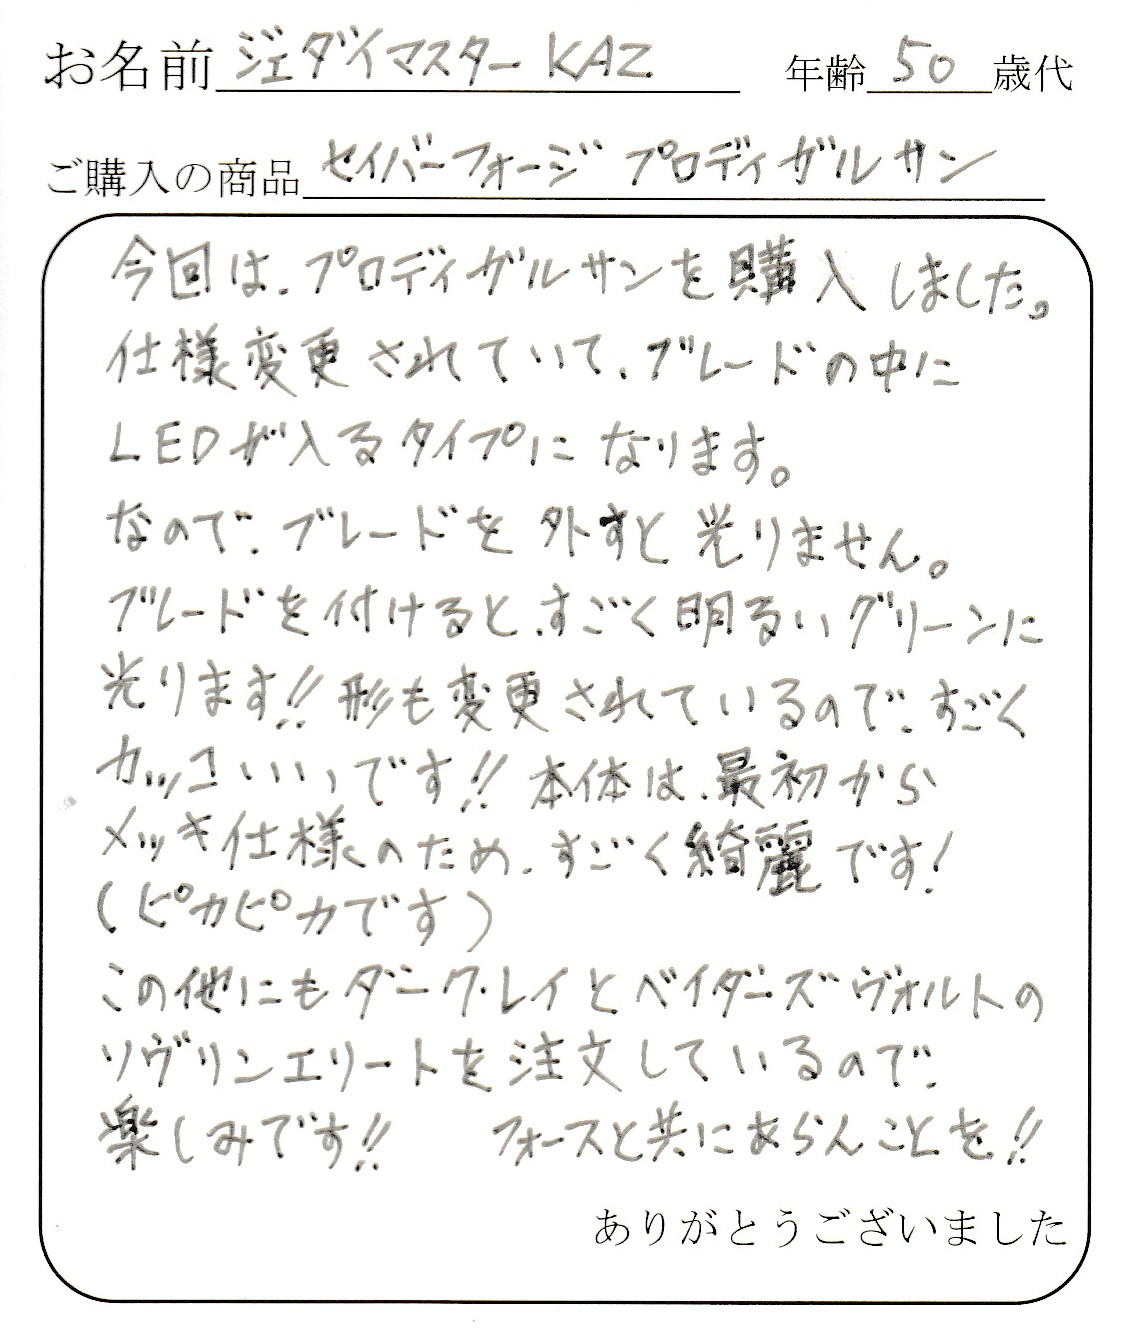 お名前 ジェダイマスター KAZ 年齢 50 歳代
ご購入の商品 セイバーフォージ プロディガルサン
今回は、プロディガルサンを購入しました。
仕様変更されていて、ブレードの中に
LEDが入るタイプになります。
なので、ブレードを外すと光りません。
ブレードを付けると、すごく明るいグリーンに
光ります!! 形も変更されているので、すごく
カッコいい、です!! 本体は、最初から
メッキ仕様のため、すごく綺麗です!
(ピカピカです)
この他にもダーク・レイとベイダーズヴォルトの
ソヴリンエリートを注文しているので、
楽しみです!! フォースと共にあらんことを!!
ありがとうございました